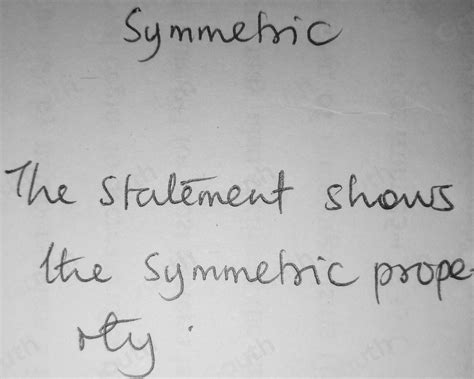 Symmetric
The Statement shows
the symmetric prope-
rty.